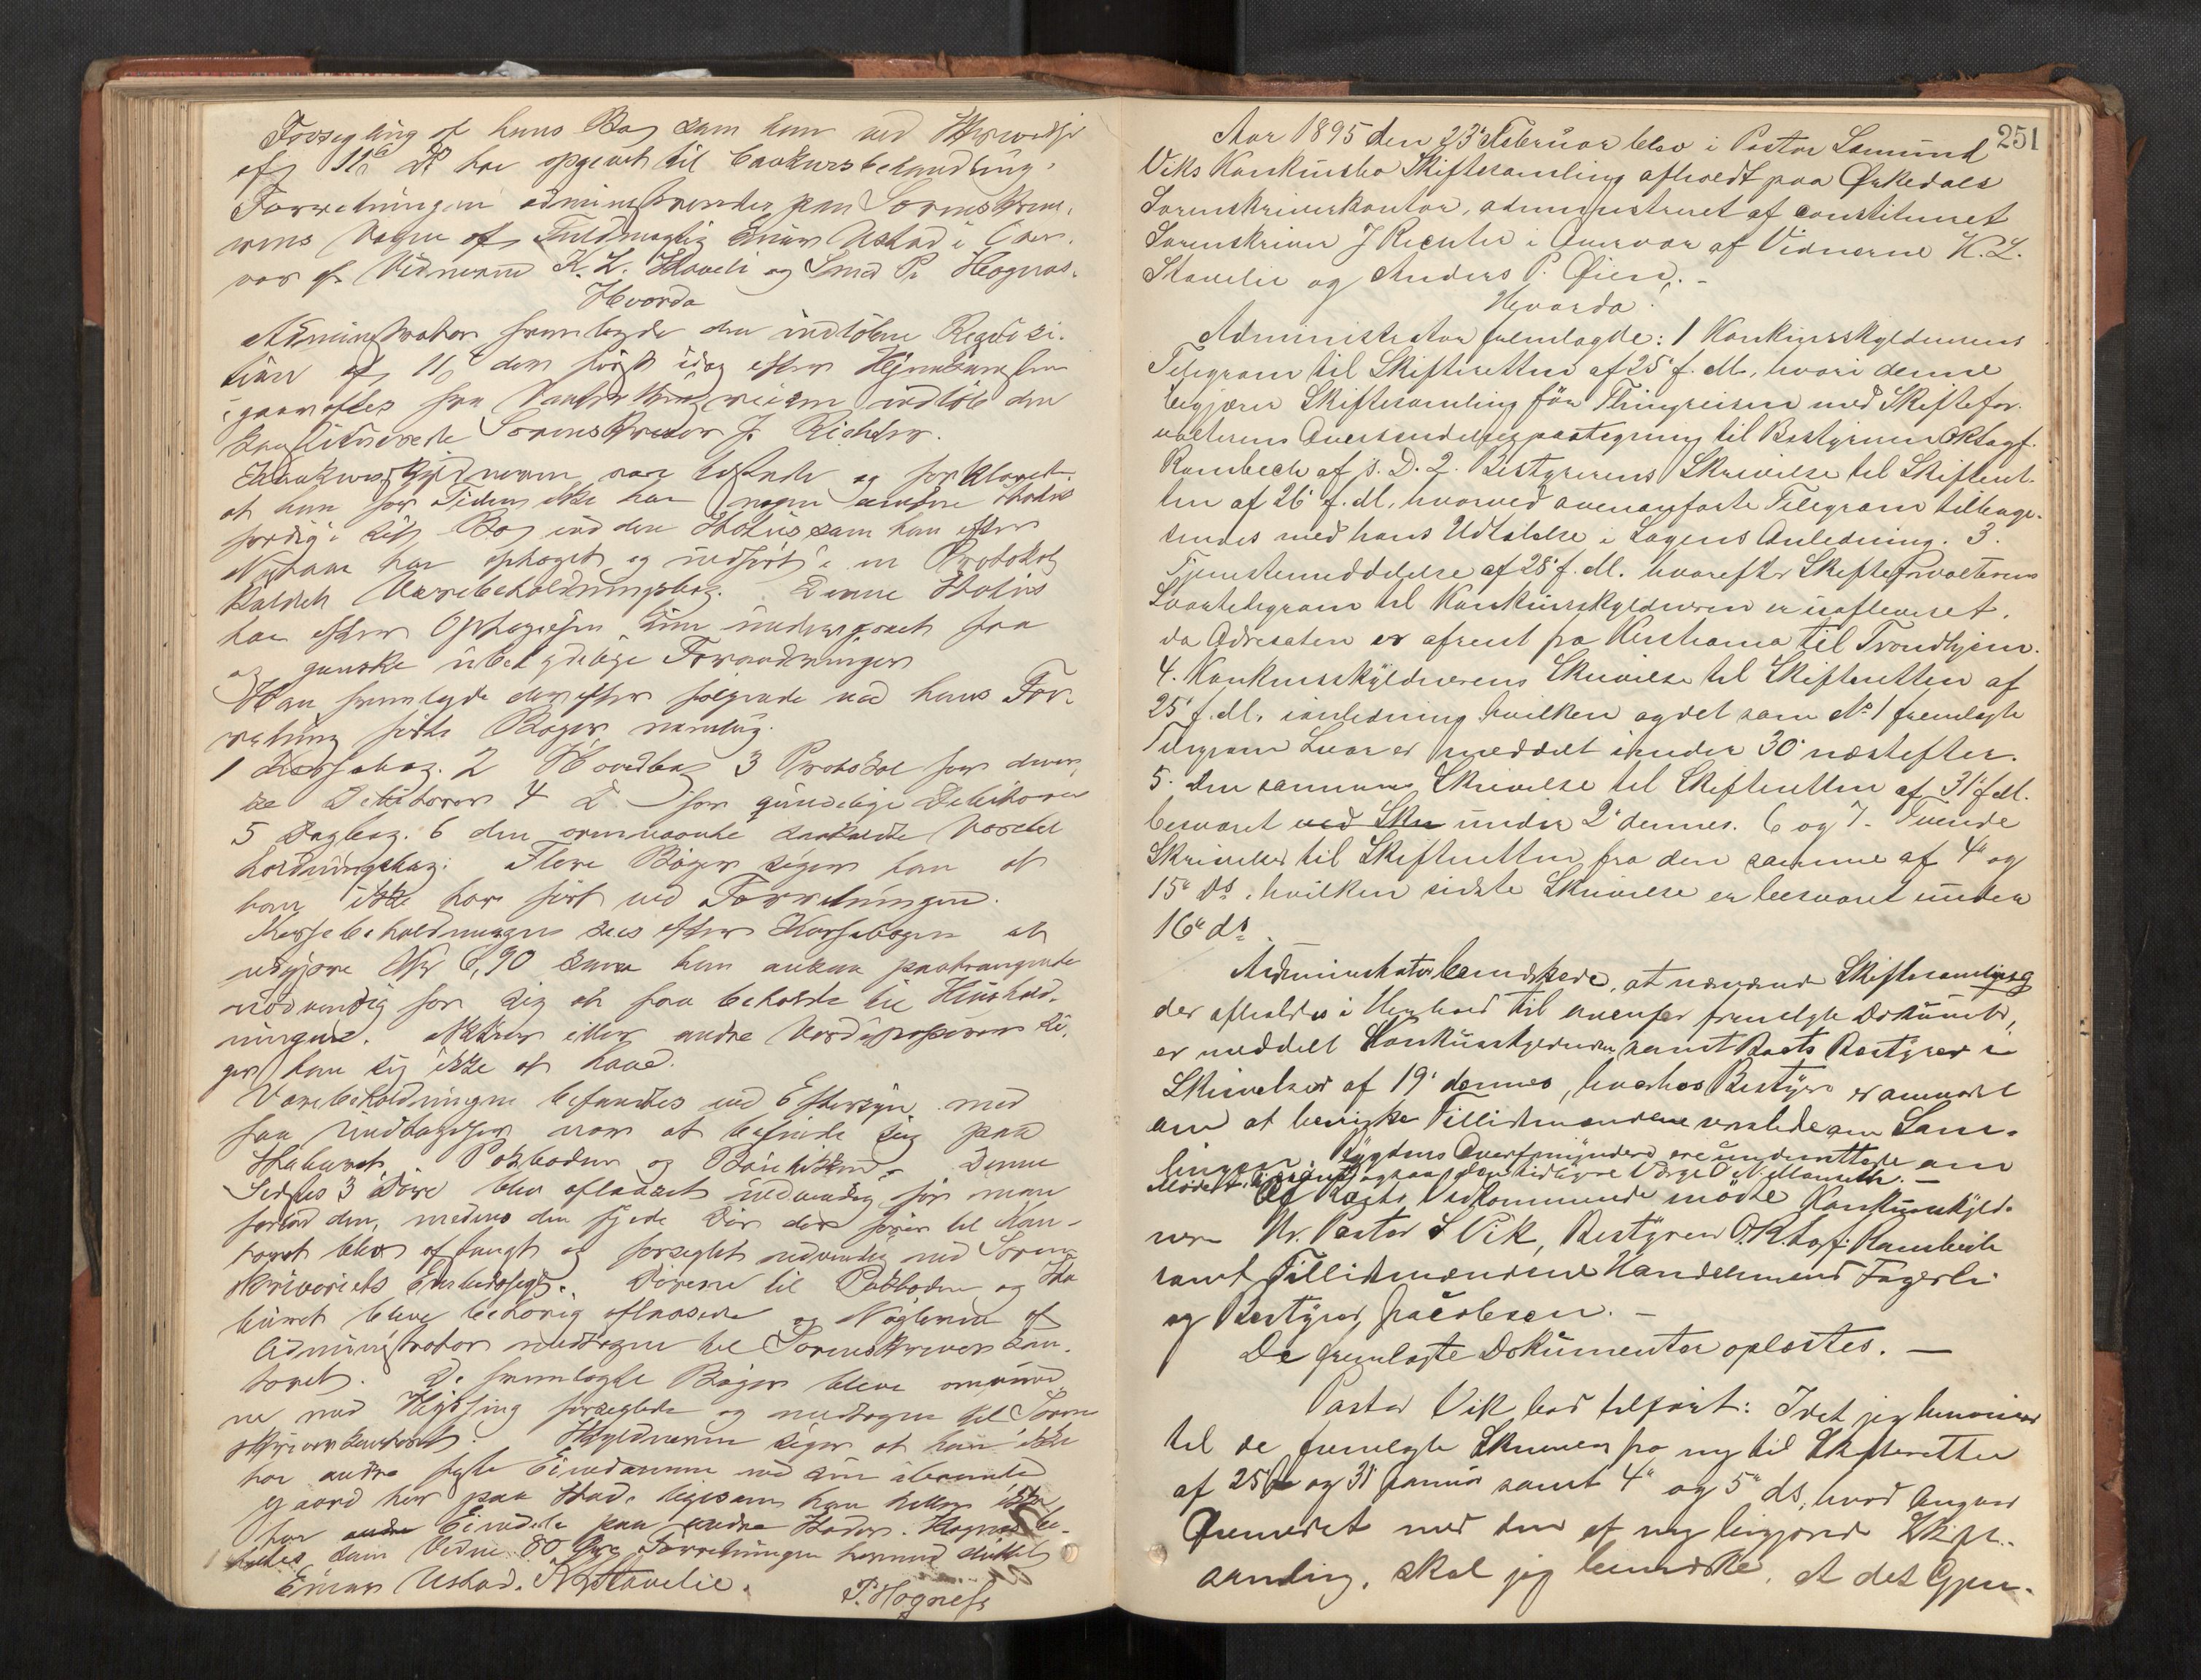 Forsegling af hans Bo, som han ved Skrivelse
af 11te ds har opgivet til Concursbehandling.
Forretningen administreredes paa Sorenskrive-
rens Vegne af Fuldmægtig Einar Ustad i Over-
vær af Vidnerne K. L. Stavelie og Smed P. Hognæs.
Hvorda
Administrator fremlagde den indløbne Requisi-
tion af 11te der først idag efter Hjemkomsten
igaaraftes fra indløb den
konstituerede Sorenskriver J. Richter.
Konkursskyldneren var tilstede og forklarede
at han for Tiden ikke har nogen anden Status
færdig i sit Bo end den Status som han efter
Nytaar har optaget og indført i en Protokol
kaldet Varebeholdningsbog. Denne Status
har efter Optagelsen kun undergaaet faa
og ganske ubetydelige Forandringer
Han fremlagde derefter følgende ved hans For-
retning førte Bøger nemlig:
1 Kassabog. 2 Hovedbog 3 Protokol for diver-
se Debitorer 4 D for uvisse Debitorer
5 Dagbog. 6 den ovennævnte saakaldte Varebe-
holdningsbog. Flere Bøger siger han at
han ikke har ført ved Forretningen.
Kassebeholdningen sees efter Kassebogen at
udgjøre Kr 6,90 som han ansaa paatrængende
nødvendig for sig at faa beholde til Hushold-
ningen. Aktier eller andre Værdipapirer si-
ger han sig ikke at have.
Varebeholdningen befandtes ved Eftersyn med
faa Undtagelser var at befinde sig paa
Stabburet, Pakboden og Boutikken. Denne
Sidstes 3 Døre blev aflaaset indvendig før man
forlod den, medens den fjede Dør der fører til Kon-
toret blev aflaaset og forseglet udvendig med Soren-
skriveriets Embedssegl. Dørene til Pakboden og Sta-
buret bleve behørig aflaasede og Nøglerne af
Administrator medtagne til Sorenskriverkon-
toret. De fremlagte Bøger bleve ombund-
ne med Hyssing forseglede og medtagne til Soren-
skriverkontoret. Skyldneren siger at han ikke
har andre faste Eiendomme end sin ubenævnte
Gaard her paa Stedet ligesom han heller ikke
har andre Eiendele paa andre Steder. Hognæs be-
taltes som Vidne 80 Øre Forretningen hermed sluttet
Einar Ustad. K. L. Stavelie.
P. Hognæss
251
Aar 1895 den 23 Februar blev i Pastor Samund
Viks Konkursbo Skiftesamling afholdt paa Ørkedals
Sorenskriverkontor, administreret af constitueret
Sorenskriver J Richter i Overvær af Vidnerne K. L.
Stavelie og Anders P. Øien. -
Hvorda:
Administrator fremlagde: 1 Konkursskyldnerens
Telegram til Skifteretten af 25' f. M., hvori denne
begjærer Skiftesamling før Thingreisen med Skiftefor-
valterens Oversendelsespaategning til Bestyreren O.R.sagf.
Rambech af s. D. 2. Bestyrerens Skrivelse til Skifteret-
ten af 26' f. M., hvorved ovenanførte Telegram tilbage-
sendes med hans Udtalelse i Sagens Anledning. 3.
Tjenestemeddelelse af 28' f. M. hvorefter Skifteforvalterens
Svartelegram til Konkursskyldneren er uafleveret,
da Adresaten er afreist fra Kristiania til Trondhjem.
4. Konkursskyldnerens Skrivelse til Skifteretten af
25' f. M. i anledning hvilken og det som No 1 fremlagte
Telegram Svar er meddelt under 30' næstefter.
5. Den sammes Skrivelse til Skifteretten af 31' f. M.
besvaret ved Skr under 2' dennes. 6 og 7. Tvende
Skrivelser til Skifteretten fra den samme af 4' og
15' ds. hvilken sidste Skrivelse er besvaret under
16' ds
Administrator bemærkede, at nærværende Skiftesamling
der afholdes i Henhold til ovenfor fremlagte Dokumenter,
er meddelt Konkursskyldneren samt Boets Bestyrer i
Skrivelser af 19' dennes, hvorhos Bestyrer er anmodet
om at besørge Tillidsmændene varslede om Sam-
lingen. Bygdens Overformynderi ere underrettede om
Mødet ogsaa den tidligere Værge
Af Boets Vedkommende mødte Konkursskyld-
neren Hr. Pastor S Vik, Bestyreren O.R.sagf. Rambech
samt Tillidsmændene Handelsmand Fagerli
og Bestyrer Jacobsen. -
De fremlagte Dokumenter oplæstes. -
Pastor Vik bad tilført: Idet jeg henviser
til de fremlagte Skrivelser fra mig til Skifteretten
af 25 og 31 Januar samt 4' og 5' ds, hvad angaar
Øiemedet med den af mig begjærede Skifte-
samling, skal jeg bemærke, at det Gjen-